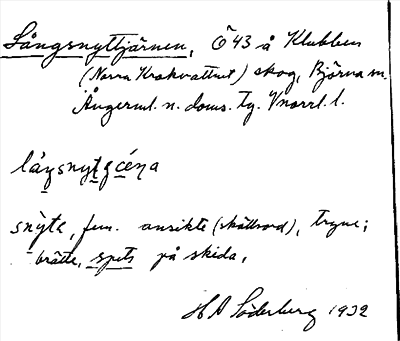 Långsnyttjärnen, Ö 43 å Klubben
(Norra Krokvattnet) skog, Björna sn.
Ångerml. n. doms. tg. Vnorrl. l.
snyta, fem. ansikte (skällsord), tryne;
brätte, spets på skida,
H A Söderberg 1932